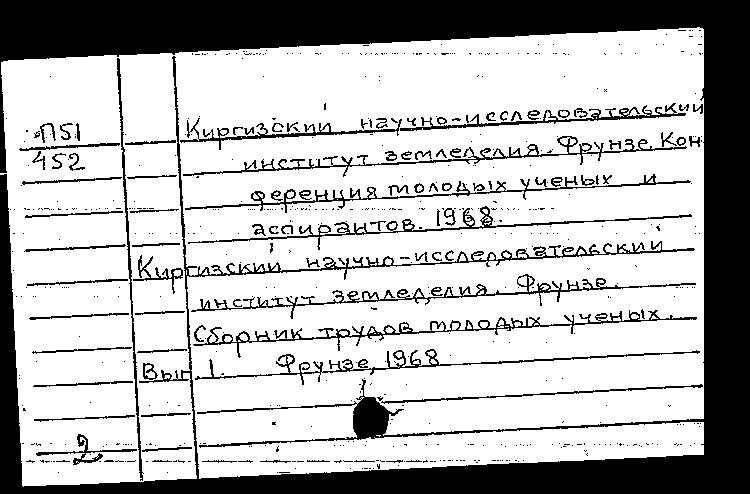 П51
452
Киргизский научно-исследовательский
институт земледелия. Фрунзе. Кон
ференция молодых ученых и
аспирантов. 1968.
Киргизский научно-исследовательский
институт земледелия. Фрунзе.
Сборник трудов молодых ученых.
Вып. 1. Фрунзе, 1968
2